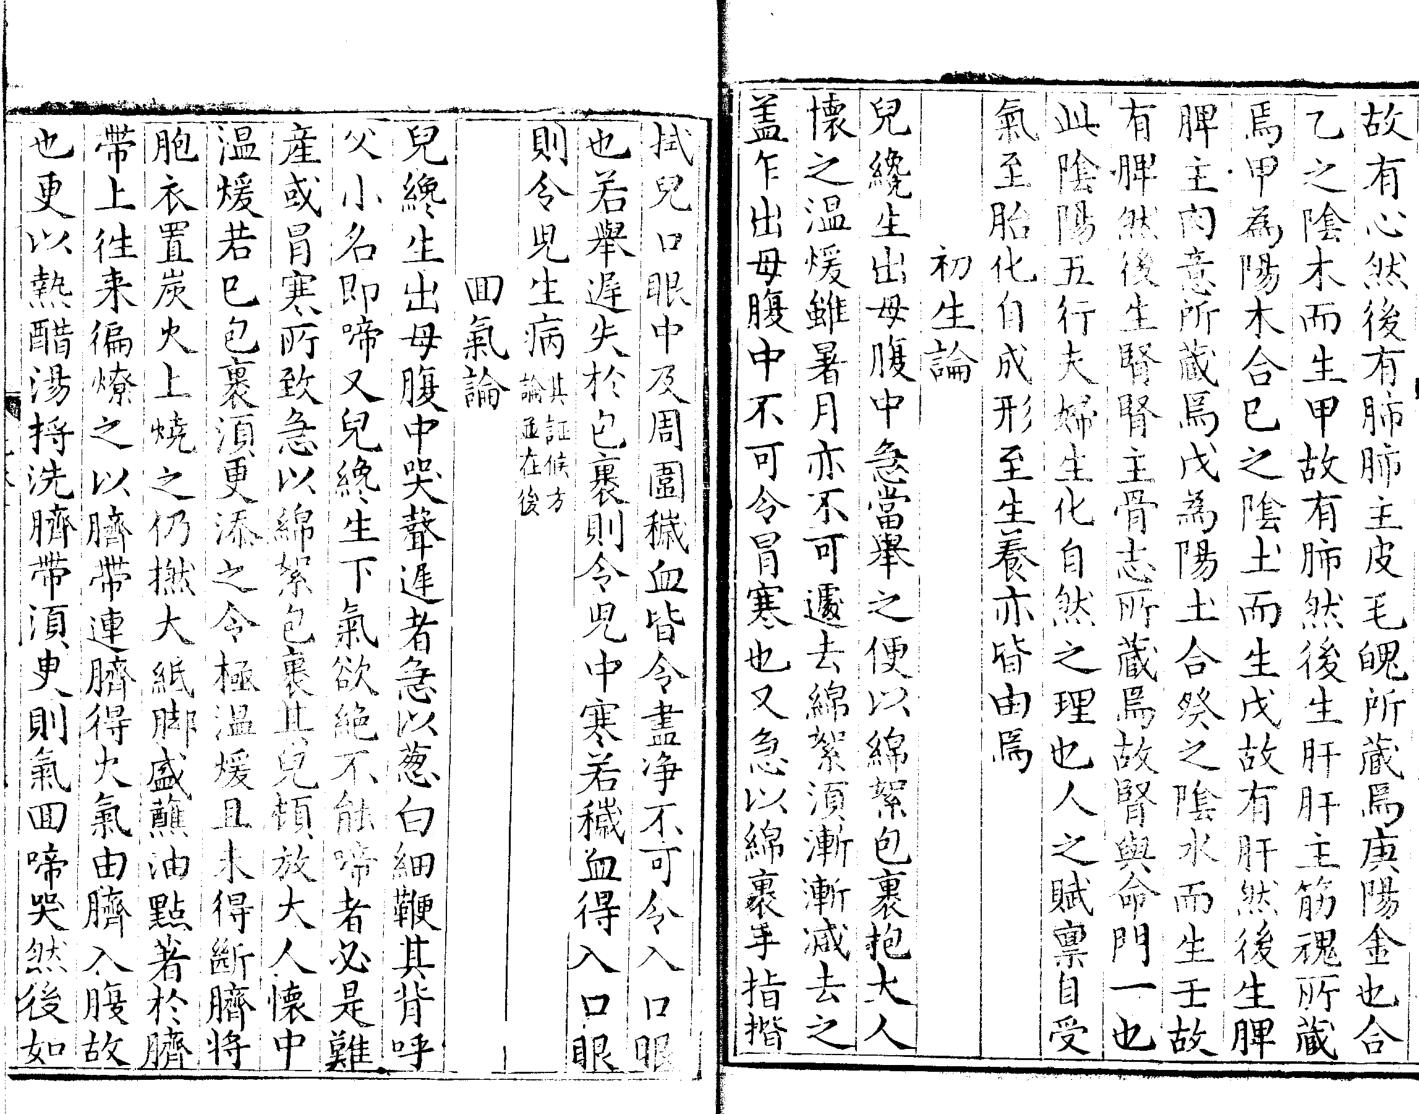 故有心然後有肺肺主皮毛魄所蔵焉庚陽金也合
乙之陰木而生甲故有肺然後生肝肝主筋魂所蔵
焉甲為陽木合巳之陰土而生戊故有肝然後生脾
脾主肉意所蔵焉戊為陽土合癸之陰水而生壬故
有脾然後生腎腎主骨志所蔵焉故腎與命門一也
此陰陽五行夫婦生化自然之理也人之賦稟自受
氣至胎化自成形至生養亦皆由焉
初生論
兒纔生出母腹中急當舉之便以綿絮包裹抱大人
懷之温煖雖暑月亦不可遽去綿絮湏漸漸减去之
盖乍出母腹中不可令冒寒也又急以綿裹手指揩
拭兒口眼中及周圍穢血皆令盡净不可令入口眼
也若舉遲失於包裹則令兒中寒若穢血得入口眼
則令兒生病其証候方
論並在後
回氣論
兒纔生出母腹中哭聲遲者急以葱白細鞭其背呼
父小名即啼又兒纔生下氣欲絶不能啼者必是難
産或冒寒所致急以綿絮包裹其兒頓放大人懷中
温煖若已包裹湏更添之令極温煖且未得斷臍將
胞衣置炭火上燒之仍撚大紙脚盛蘸油點著於臍
帶上徃来徧燎之以臍帶連臍得火氣由臍入腹故
也更以熱醋湯捋洗臍帶湏臾則氣回啼哭然後如